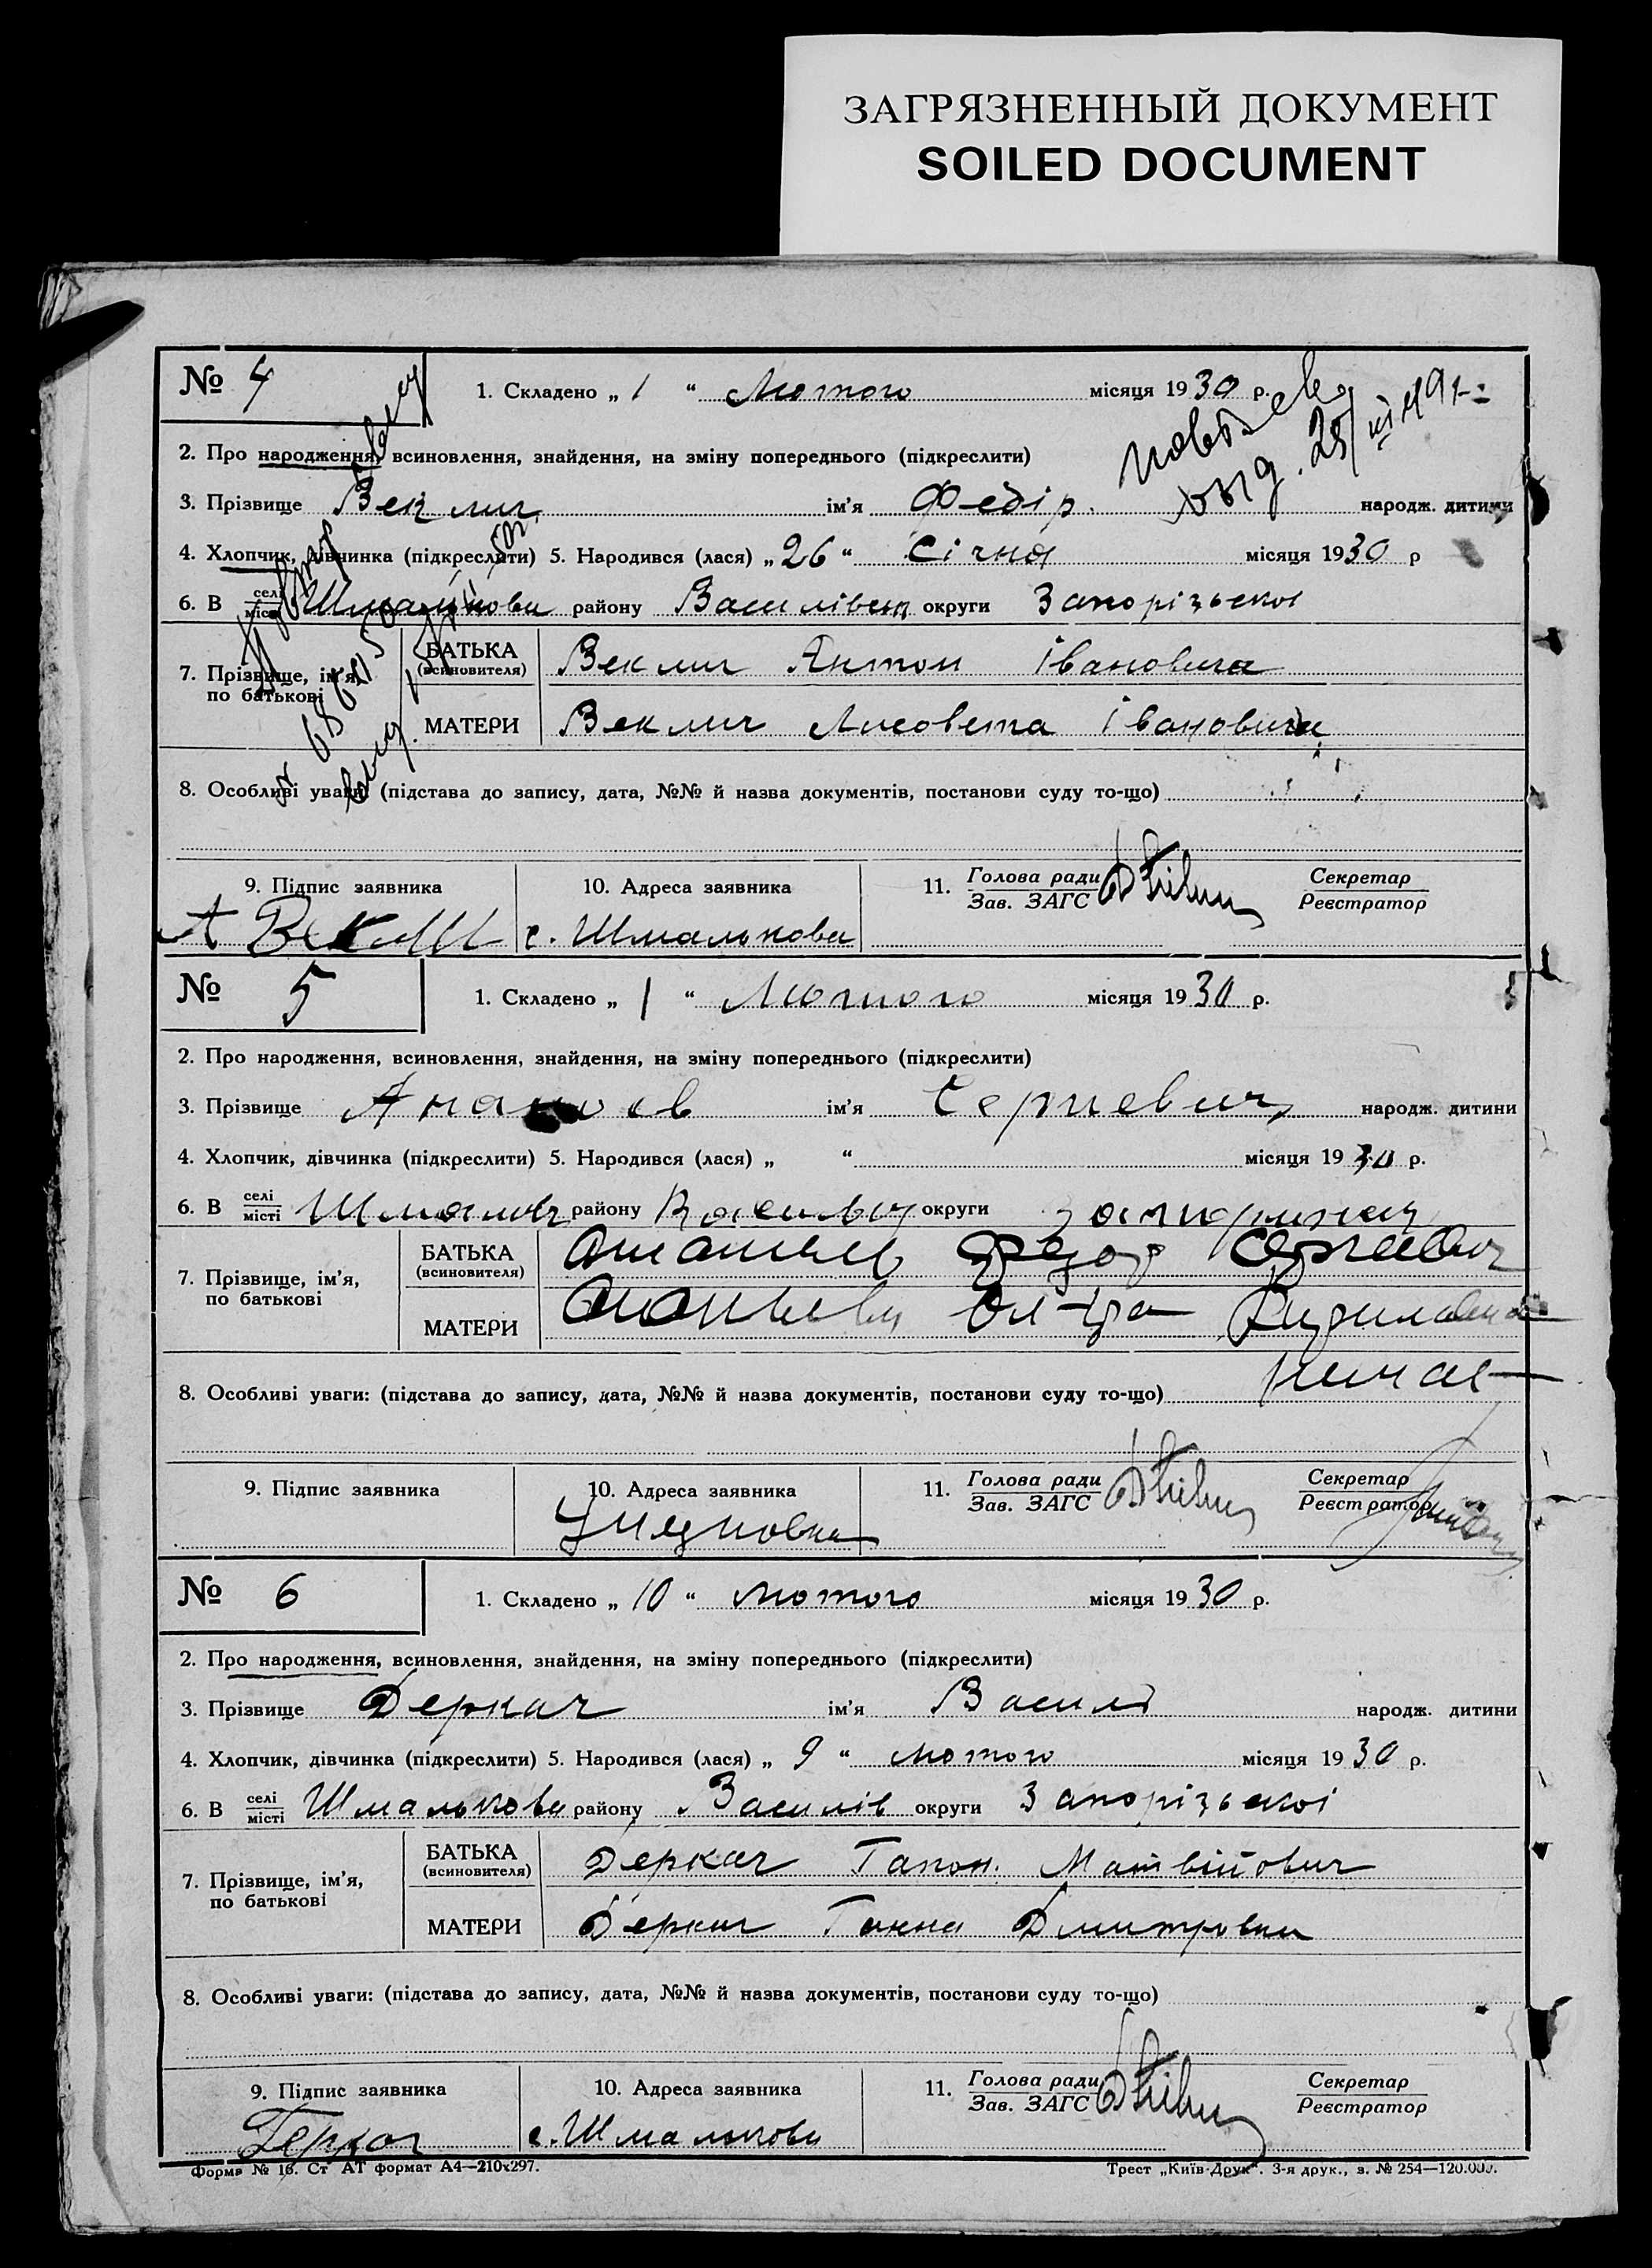 ЗАГРЯЗНЕННЫЙ ДОКУМЕНТ
SOILED DOCUMENT
№ 4
1. Складено „ 1 “ Лютого місяця 1930 р.
2. Про народження, всиновлення, знайдення, на зміну попереднього (підкреслити)
3. Прізвище Веклич ім'я Федір. народж. дитини
4. Хлопчик, дівчинка (підкреслити) 5. Народився (лася) „ 26 “ Січня місяця 1930 р
6. В селі місті Шмалькова району Василівськ округи Запорізької
7. Прізвище, ім'я, по батькові
БАТЬКА (всиновителя) Веклич Антон Івановича
МАТЕРИ Веклич Лисовета
8. Особливі уваги: (підстава до запису, дата, №№ й назва документів, постанови суду то-що)
9. Підпис заявника
10. Адреса заявника
11. Голова ради Зав. ЗАГС
Секретар Реєстратор
А Веклич
с. Шмалькова
№ 5
1. Складено „ 1 “ Лютого місяця 1930 р.
2. Про народження, всиновлення, знайдення, на зміну попереднього (підкреслити)
3. Прізвище ім'я Сергиевич народж. дитини
4. Хлопчик, дівчинка (підкреслити) 5. Народився (лася) „ “ місяця 1930 р.
6. В селі місті району округи
7. Прізвище, ім'я, по батькові
БАТЬКА (всиновителя) Федор Сергеевич
МАТЕРИ
8. Особливі уваги: (підстава до запису, дата, №№ й назва документів, постанови суду то-що)
9. Підпис заявника
10. Адреса заявника
11. Голова ради Зав. ЗАГС
Секретар Реєстратор
№ 6
1. Складено „ 10 “ лютого місяця 1930 р.
2. Про народження, всиновлення, знайдення, на зміну попереднього (підкреслити)
3. Прізвище Деркач ім'я Василь народж. дитини
4. Хлопчик, дівчинка (підкреслити) 5. Народився (лася) „ 9 “ лютого місяця 1930 р.
6. В селі місті Шмалькова району Василів округи Запорізької
7. Прізвище, ім'я, по батькові
БАТЬКА (всиновителя) Деркач Гапон. Матвійович
МАТЕРИ Деркач Ганна Дмитровна
8. Особливі уваги: (підстава до запису, дата, №№ й назва документів, постанови суду то-що)
9. Підпис заявника
10. Адреса заявника
11. Голова ради Зав. ЗАГС
Секретар Реєстратор
Деркач
с. Шмалькова
Форма № 16. Ст АТ формат А4—210х297.
Трест „Київ-Друк“. 3-я друк., з. № 254—120.000.